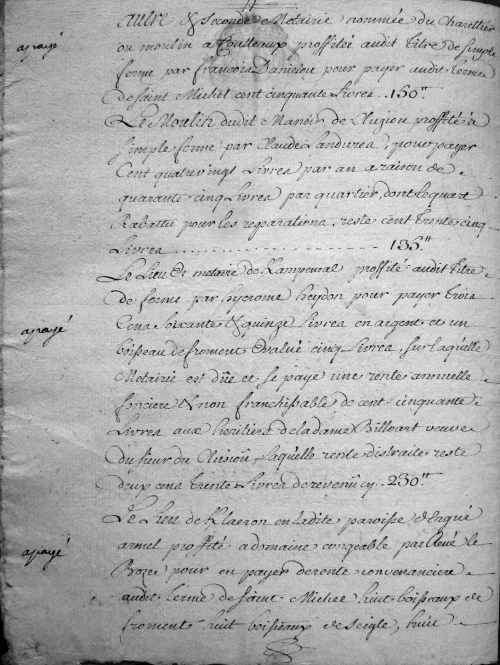 autre & seconde Metairie nommée du
ou moulin a proffitée audit titre de simple
ferme par Francois Daniclou pour payer audit terme
de saint Michel cent cinquante livres .. 150ᵗᵗ
a payé
Le Moulin dudit Manoir de proffité a
simple ferme par Claude Landurea, pour payer
Cent quatrevingt Livres par an a raison de
quarante cinq Livres par quartier, dont le quart
Rabattu pour les reparations, reste cent trente cinq
Livres - - - - - - - - - - - - - - - - 135ᵗᵗ
Le Lieu Et metairie de proffité audit titre
de ferme par hyerome heydon pour payer trois
Cens soixante & quinze Livres en argent et un
a payé
boisseau de froment Evalué cinq Livres, sur laquelle
Metairie est düe et se paye une rente annuelle
fonciere & non franchissable de cent-cinquante
Livres aux heritiers de la dame Billoart veuve
du sieur du laquelle rente distraite reste
deux cens trente Livres de revenü cy .. 230ᵗᵗ
Le Lieu de en ladite paroisse
armel proffité a domaine congeable par René le
a payé
pour en payer de rente convenanciere
audit terme de saint Michel huit boisseaux de
froment huit boisseaux de seigle, huit